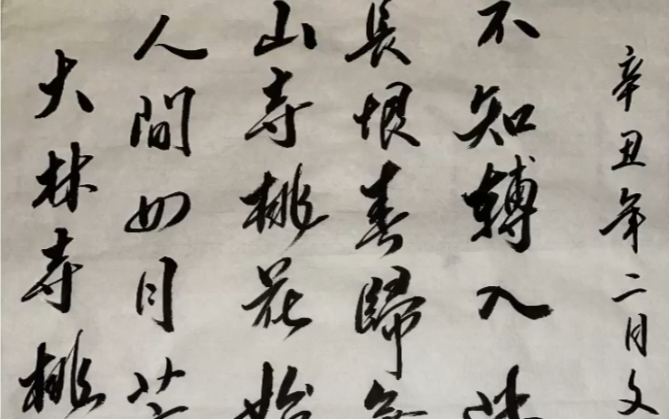 大林寺桃
人間四月
山寺桃花始
長恨春歸
不知轉入
辛丑年二月文